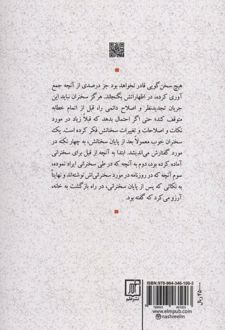 هیچ سخن‌گویی قادر نخواهد بود جز درصدی از آنچه جمع
آوری کرده، در اظهاراتش بگنجاند. هرگز سخنران نباید این
جریان تجدیدنظر و اصلاح دائمی را، قبل از اتمام خطابه
متوقف کند؛ حتی اگر احتمال بدهد که قبلاً زیاد در مورد
نکات و اصلاحات و تغییرات سخنانش فکر کرده است. یک
سخنران خوب، معمولاً بعد از پایان سخنانش، به چهار نکته در
مورد گفتارش می‌اندیشد. ابتدا به آنچه از قبل برای سخنرانی
آماده کرده بود، دوم به آنچه که در طی سخنرانی ایراد نموده،
سوم آنچه که در روزنامه در مورد سخنرانی‌اش نوشته‌اند و نهایتاً
به نکاتی که پس از پایان سخنرانی، در راه بازگشت به خانه،
آرزو می‌کرد که گفته بود.
نشر علم
ISBN: 978-964-346-100-3
www.elmpub.com
nashreelm
ریال